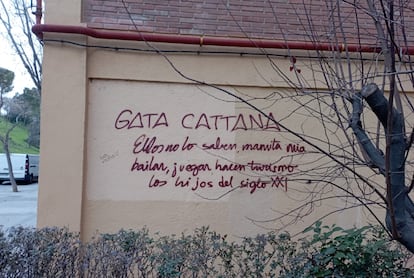 GATA CATTANA
Ellos no lo saben, manita mia
bailar, juegar hacen turismo
los hijos del siglo XXI